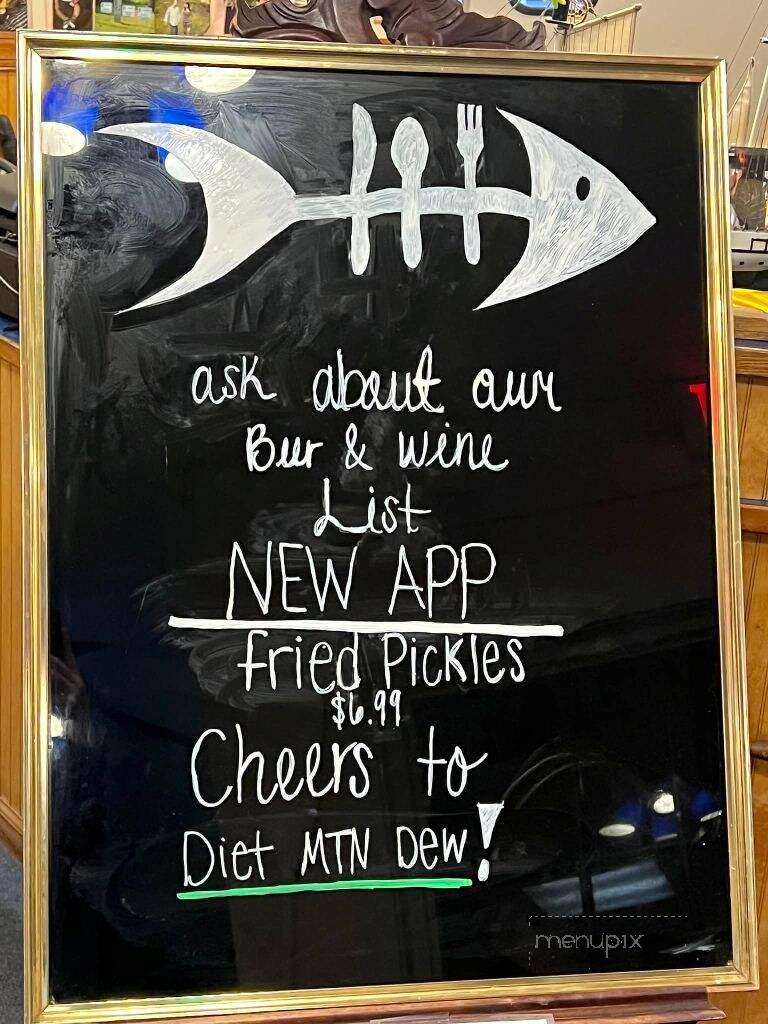 ask about our
Beer & wine
List
NEW APP
fried Pickles
$6.99
Cheers to
Diet MTN Dew!
menupix